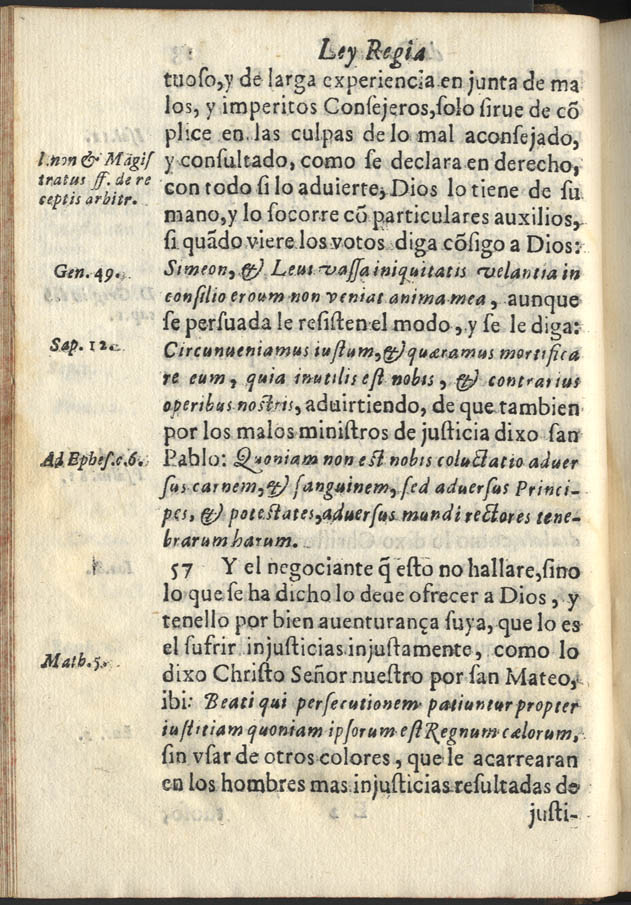 Ley Regia
tuoſo, y de larga experiencia en junta de ma
los, y imperitos Conſejeros, ſolo ſirue de cõ
plice en las culpas de lo mal aconſejado,
l. non & Magiſ
tratus ff. de re
ceptis arbitr.
y conſultado, como ſe declara en derecho,
con todo ſi lo aduierte, Dios lo tiene de ſu
mano, y lo ſocorre cõ particulares auxilios,
ſi quãdo viere los votos diga cõſigo a Dios:
Gen. 49.
Simeon, & Leui vaſſa iniquitatis velantia in
conſilio eroum non veniat anima mea, aunque
ſe perſuada le reſiſten el modo, y ſe le diga:
Sap. 12.
Circunueniamus iuſtum, & quæramus mortifica
re eum, quia inutilis eſt nobis, & contrarius
operibus noſtris, aduirtiendo, de que tambien
por los malos miniſtros de juſticia dixo ſan
Ad Epheſ. c. 6.
Pablo: Quoniam non eſt nobis coluctatio aduer
ſus carnem, & ſanguinem, ſed aduerſus Princi-
pes, & poteſtates, aduerſus mundi rectores tene-
brarum harum.
57 Y el negociante q̃ eſto no hallare, ſino
lo que ſe ha dicho lo deue ofrecer a Dios, y
tenello por bien auenturança ſuya, que lo es
el ſufrir injuſticias injuſtamente, como lo
Math. 5.
dixo Chriſto Señor nueſtro por ſan Mateo,
ibi: Beati qui perſecutionem patiuntur propter
iuſtitiam quoniam ipſorum eſt Regnum cælorum,
ſin vſar de otros colores, que le acarrearan
en los hombres mas injuſticias reſultadas de
juſti-